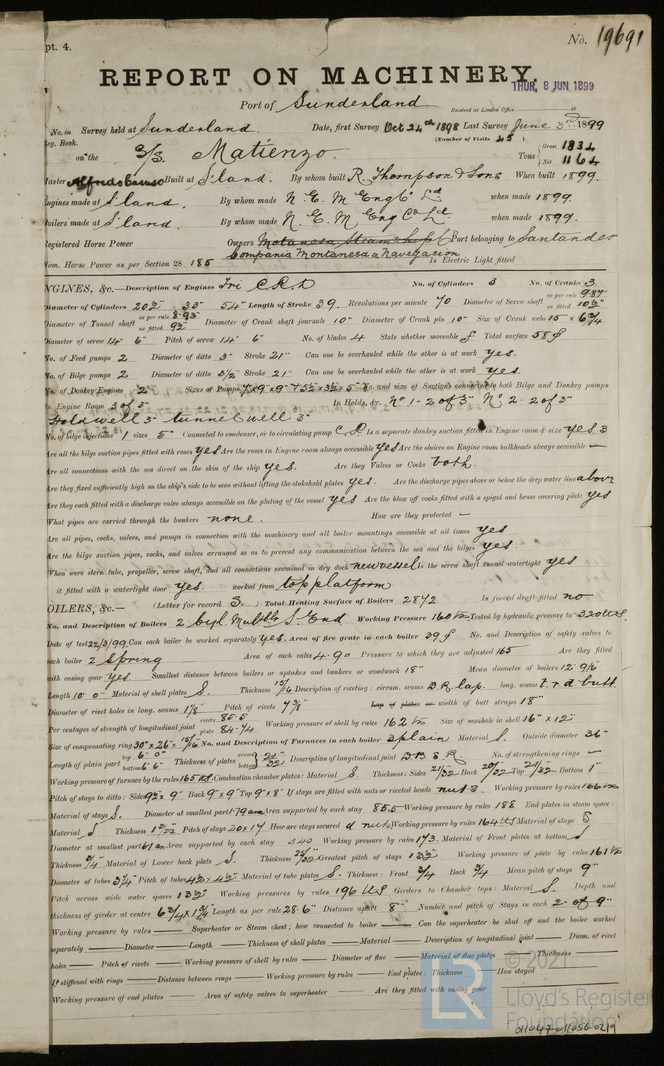 pt. 4.
No. 19691
REPORT ON MACHINERY.
THUR. 8 JUN 1899
Port of Sunderland
Received at London Office
No. in Survey held at Sunderland. Date, first Survey Oct 24th 1898 Last Survey June 3rd 1899
Reg. Book. (Number of Visits 45)
on the S/S. Matienzo. Tons Gross 1834 Net 1164
Master Built at S'land. By whom built R. Thompson & Sons When built 1899.
Engines made at S'land. By whom made N. E. M Engg Co Ld when made 1899.
Boilers made at S'land. By whom made N. E. M Eng Co Ld. when made 1899.
Registered Horse Power Owners Port belonging to Santander
Compania Montanesa a Navegacion
Nom. Horse Power as per Section 28 185 Is Electric Light fitted
NGINES, &c.—Description of Engines Tri No. of Cylinders 3 No. of Cranks 3
Diameter of Cylinders 20½" 33" 54" Length of Stroke 39. Revolutions per minute 70 Diameter of Screw shaft as per rule 9.87 as fitted 10½"
Diameter of Tunnel shaft as per rule 8.93 as fitted 9½" Diameter of Crank shaft journals 10" Diameter of Crank pin 10" Size of Crank webs 15 × 6¾
Diameter of screw 14' 6" Pitch of screw 14' 6" No. of blades 4 State whether moveable Total surface 58
No. of Feed pumps 2 Diameter of ditto 3" Stroke 21" Can one be overhauled while the other is at work yes.
No. of Bilge pumps 2 Diameter of ditto 3½ Stroke 21" Can one be overhauled while the other is at work yes.
No. of Donkey Engines 2 Sizes of Pumps No. and size of Suctions connected to both Bilge and Donkey pumps
In Engine Room 3 of 3" In Holds, &c. No 1 - 2 of 3" No 2 - 2 of 3"
Holdwell 3" tunnel well 3"
No. of bilge injections 1 sizes 5" Connected to condenser, or to circulating pump C.P. Is a separate donkey suction fitted in Engine room & size yes 3
Are all the bilge suction pipes fitted with roses yes Are the roses in Engine room always accessible yes Are the sluices on Engine room bulkheads always accessible —
Are all connections with the sea direct on the skin of the ship yes. Are they Valves or Cocks both.
Are they fixed sufficiently high on the ship's side to be seen without lifting the stokehold plates yes. Are the discharge pipes above or below the deep water line above
Are they each fitted with a discharge valve always accessible on the plating of the vessel yes Are the blow off cocks fitted with a spigot and brass covering plate yes
What pipes are carried through the bunkers none. How are they protected —
Are all pipes, cocks, valves, and pumps in connection with the machinery and all boiler mountings accessible at all times yes
Are the bilge suction pipes, cocks, and valves arranged so as to prevent any communication between the sea and the bilges yes
When were stern tube, propeller, screw shaft, and all connections examined in dry dock new vessel Is the screw shaft tunnel watertight yes
it fitted with a watertight door yes. worked from top platform
OILERS, &c.— (Letter for record S.) Total Heating Surface of Boilers 2872 Is forced draft fitted no
No. and Description of Boilers 2 Cyl. Multbr S. End. Working Pressure 160 lbs Tested by hydraulic pressure to 320 lbs.
Date of test 22/3/99 Can each boiler be worked separately yes. Area of fire grate in each boiler 39 No. and Description of safety valves to
each boiler 2 Spring Area of each valve 4.90 Pressure to which they are adjusted 165 Are they fitted
with easing gear yes Smallest distance between boilers or uptakes and bunkers or woodwork 18" Mean diameter of boilers 12' 9⅛"
Length 10' 0" Material of shell plates S. Thickness 15/16 Description of riveting: circum. seams D.R. lap. long. seams t.r.d butt
Diameter of rivet holes in long. seams 1⅛ Pitch of rivets 7⅞ Lap of plates or width of butt straps 18"
Per centages of strength of longitudinal joint rivets 85.5 plate 84.74 Working pressure of shell by rules 162 lbs Size of manhole in shell 16" × 12"
Size of compensating ring 30" × 26" × 15/16 No. and Description of Furnaces in each boiler 3 plain Material S. Outside diameter 36"
Length of plain part top 6' 0" bottom 6' 6" Thickness of plates Description of longitudinal joint D.B.S.R. No. of strengthening rings —
Working pressure of furnace by the rules 165 lbs Combustion chamber plates: Material S. Thickness: Sides 21/32 Back 20/32 Top 21/32 Bottom 1"
Pitch of stays to ditto: Sides 9½ × 9" Back 9" × 9" Top 9" × 8" If stays are fitted with nuts or riveted heads nuts. Working pressure by rules 166 lbs
Material of stays S. Diameter at smallest part Area supported by each stay 85.5 Working pressure by rules 188 End plates in steam space:
Material S Thickness Pitch of stays 20 × 17 How are stays secured d nuts Working pressure by rules 164 lbs Material of stays S
Diameter at smallest part Area supported by each stay 340 Working pressure by rules 173. Material of Front plates at bottom S
Thickness ¾" Material of Lower back plate S. Thickness 25/32 Greatest pitch of stays 13½" Working pressure of plate by rules 161 lbs
Diameter of tubes 3¼" Pitch of tubes 4½ × 4½" Material of tube plates S. Thickness: Front ¾ Back ¾ Mean pitch of stays 9"
Pitch across wide water spaces 13½" Working pressures by rules 196 lbs Girders to Chamber tops: Material S. Depth and
thickness of girder at centre 6¾ × 1¾ Length as per rule 28.6" Distance apart 8" Number and pitch of Stays in each 2 of 9"
Working pressure by rules —— Superheater or Steam chest; how connected to boiler —— Can the superheater be shut off and the boiler worked
separately —— Diameter —— Length —— Thickness of shell plates —— Material —— Description of longitudinal joint —— Diam. of rivet
holes —— Pitch of rivets —— Working pressure of shell by rules —— Diameter of flue —— Material of flue plates —— Thickness ——
If stiffened with rings —— Distance between rings —— Working pressure by rules —— End plates: Thickness —— How stayed
Working pressure of end plates —— Area of safety valves to superheater —— Are they fitted with easing gear
© 2021
LR
Lloyd's Register
Foundation
011047-011056-0219